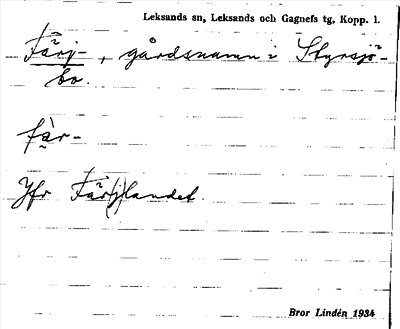 Leksands sn, Leksands och Gagnefs tg, Kopp. l.
Färj-, gårdsnamn i Styrsjö-
bo.
fàr-
Jfr Fär(j)landet.
Bror Lindén 1934